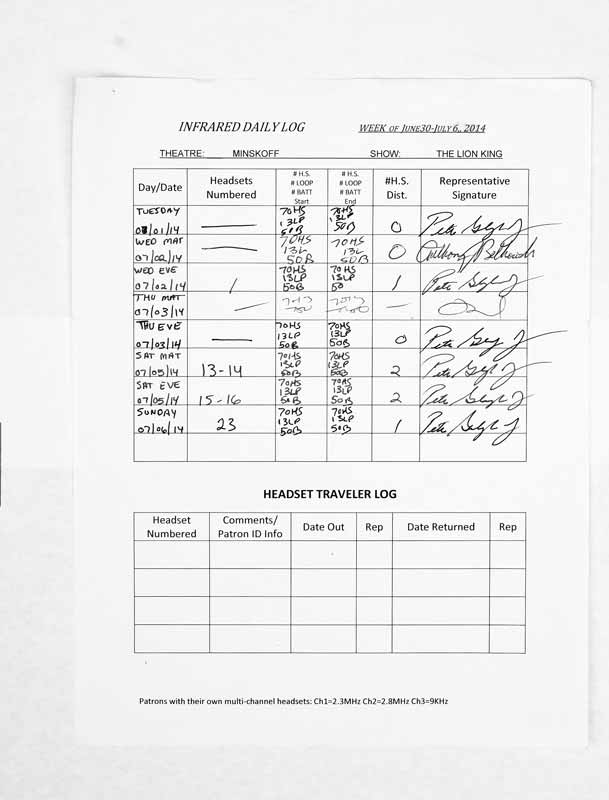 INFRARED DAILY LOG WEEK OF JUNE30-JULY 6, 2014
THEATRE: MINSKOFF SHOW: THE LION KING
Day/Date Headsets Numbered # H.S. # LOOP # BATT Start # H.S. # LOOP # BATT End #H.S. Dist. Representative Signature
TUESDAY 07/01/14 — 70HS 13LP 50B 70HS 13LP 50B 0
WED MAT 07/02/14 — 70HS 13L 50B 70HS 13L 50B 0 Anthony
WED EVE 07/02/14 1 70HS 13LP 50B 70HS 13LP 50 1 Pete
THU MAT 07/03/14 —
THU EVE 07/03/14 — 70HS 13LP 50B 70HS 13LP 50B 0 Pete
SAT MAT 07/05/14 13-14 70HS 13LP 50B 70HS 13LP 50B 2 Pete
SAT EVE 07/05/14 15-16 70HS 13LP 50B 70HS 13LP 50B 2 Pete
SUNDAY 07/06/14 23 70HS 13LP 50B 70HS 13LP 50B 1 Pete
HEADSET TRAVELER LOG
Headset Numbered Comments/ Patron ID Info Date Out Rep Date Returned Rep
Patrons with their own multi-channel headsets: Ch1=2.3MHz Ch2=2.8MHz Ch3=9KHz